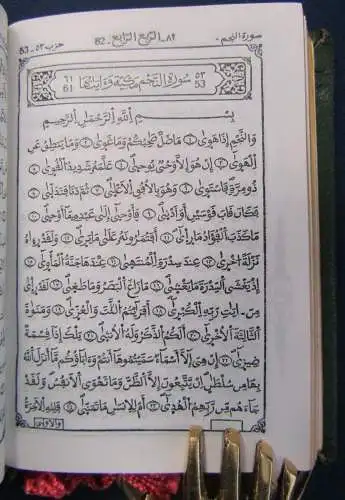 سورة النجم - ٨٢ - الربع الرابع - 82 حزب ٥٣ - 53
٥٣ 53 سورة النجم مكية وآياتها ٦١ 61
بسم الله الرحمن الرحيم
والنجم إذا هوى ١ ما ضل صاحبكم وما غوى ٢ وما ينطق عن
الهوى ٣ إن هو إلا وحي يوحى ٤ علمه شديد القوى ٥
ذو مرة فاستوى ٦ وهو بالأفق الأعلى ٧ ثم دنا فتدلى ٨
فكان قاب قوسين أو أدنى ٩ فأوحى إلى عبده ما أوحى ١٠
ما كذب الفؤاد ما رأى ١١ أفتمرونه على ما يرى ١٢ ولقد رءاه
نزلة أخرى ١٣ عند سدرة المنتهى ١٤ عندها جنة المأوى ١٥
إذ يغشى السدرة ما يغشى ١٦ ما زاغ البصر وما طغى ١٧ لقد رأى
من آيات ربه الكبرى ١٨ أفرءيتم اللت والعزى ١٩ ومنوة
الثالثة الأخرى ٢٠ ألكم الذكر وله الأنثى ٢١ تلك إذا قسمة
ضيزى ٢٢ إن هي إلا أسماء سميتموها أنتم وءاباؤكم ما أنزل الله
بها من سلطن إن يتبعون إلا الظن وما تهوى الأنفس ولقد
جاءهم من ربهم الهدى ٢٣ أم للإنسن ما تمنى ٢٤ فلله الآخرة
والأولى